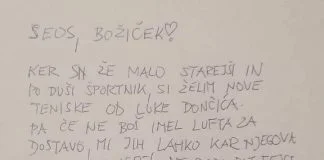 SEOS, BOŽIČEK!
KER SN ŽE MALO STAREJŠI IN
PO DUŠI ŠPORTNIK, SI ŽELIM NOVE
TENISKE OD LUKE DONČIĆA.
PA ČE NE BOŠ IMEL LUFTA ZA
DOSTAVO, MI JIH LAHKO KAR NJEGOVA